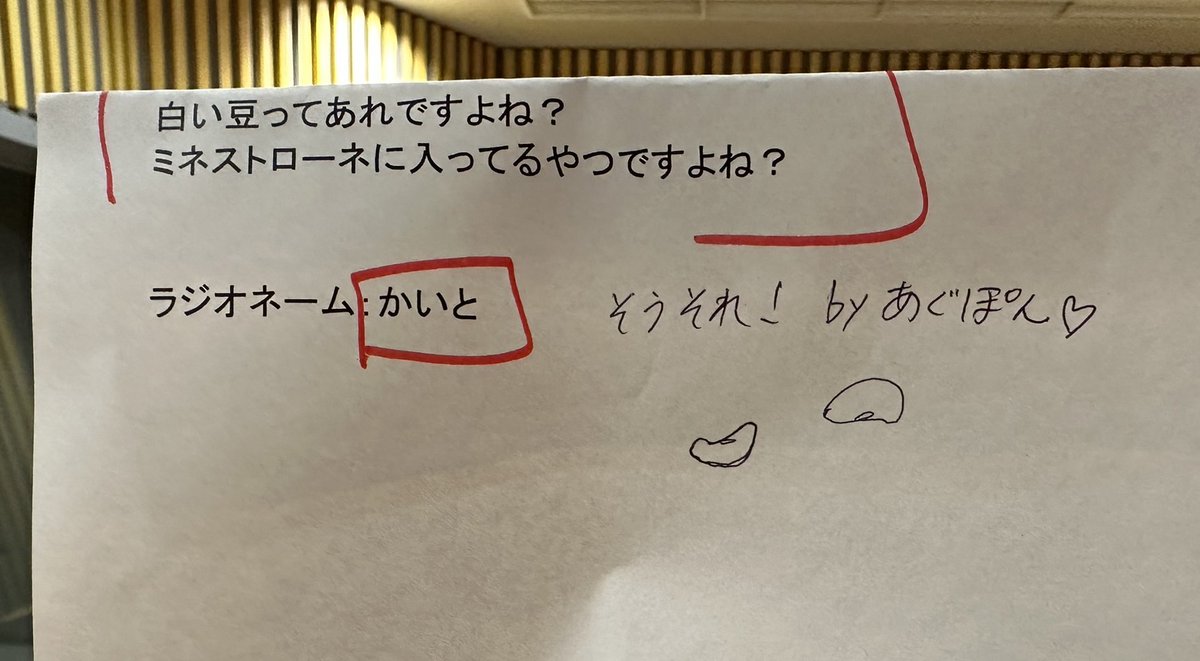 白い豆ってあれですよね?
ミネストローネに入ってるやつですよね?
ラジオネーム:かいと
そうそれ! by あぐぽん♡